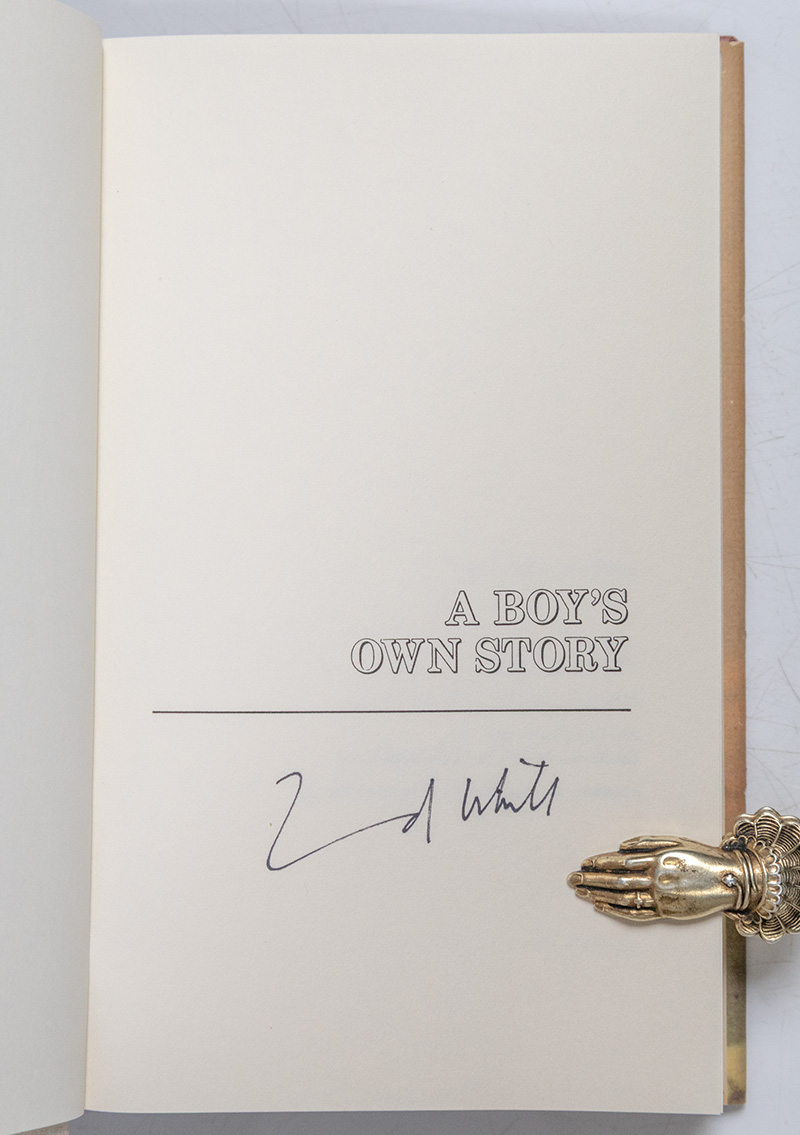 A BOY'S
OWN STORY
Ed White